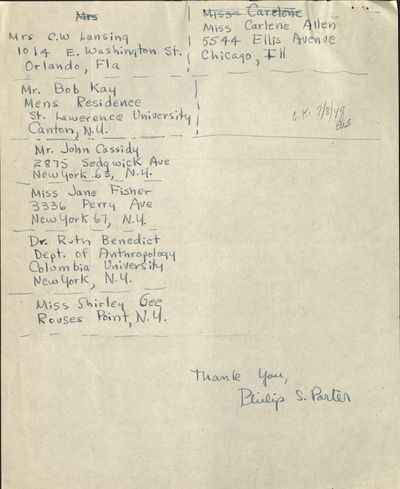 Mrs
Mrs C.W Lansing
1014 E. Washington St.
Orlando, Fla
Mr. Bob Kay
Mens Residence
St. Lawerence University
Canton, N.Y.
Mr. John Cassidy
2875 Sedgwick Ave
New York 63, N.Y.
Miss Jane Fisher
3336 Perry Ave
New York 67, N.Y.
Dr. Ruth Benedict
Dept. of Anthropology
Columbia University
New York, N.Y.
Miss Shirley Gee
Rouses Point, N.Y.
Miss Carelene
Miss Carlene Allen
5544 Ellis Avenue
Chicago, Ill
O.K. 7/8/47
Thank You,
Philip S. Porter